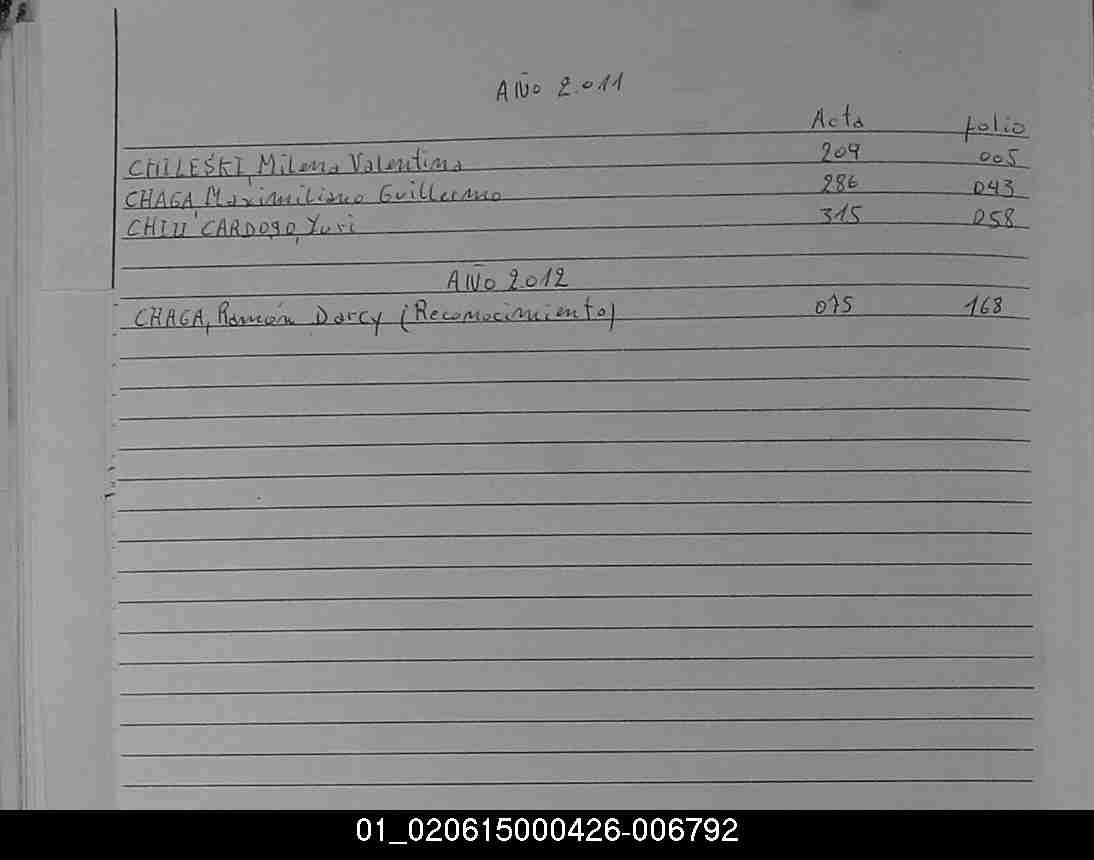 AÑO 2.011
Acta folio
CHILESKI, Milena Valentina 209 005
CHAGA, Maximiliano Guillermo 286 043
CHIU CARDOSO, Yuri 315 058
AÑO 2.012
CHAGA, Ramón Darcy (Reconocimiento) 075 168
01_020615000426-006792